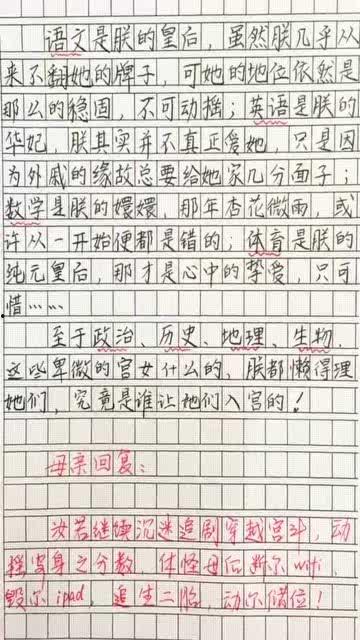 语文是朕的皇后，虽然朕几乎从
来不翻她的牌子，可她的地位依然是
那么的稳固，不可动摇；英语是朕的
华妃，朕其实并不真正爱她，只是因
为外戚的缘故总要给她家几分面子；
数学是朕的嬛嬛，那年杏花微雨，或
许从一开始便都是错的；体育是朕的
纯元皇后，那才是心中的挚爱，只可
惜……
至于政治、历史、地理、生物、
这些卑微的宫女什么的、朕都懒得理
她们，究竟是谁让她们入宫的！
母亲回复：
汝若继续沉迷追剧穿越宫斗，动
摇安身之分数，休怪母后断尔wifi，
毁尔ipad，追生二胎，动尔储位！